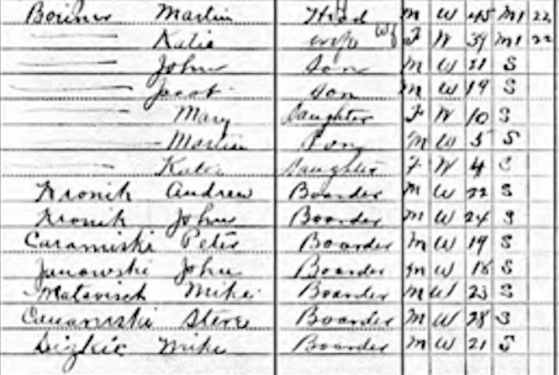 Boriner Martin Head M W 45 M1 22
Katie wife Wf F W 39 M1 22
John Son M W 21 S
Jacob Son M W 19 S
Mary Daughter F W 10 S
Martin Son M W 5 S
Katie Daughter F W 4 S
Kronik Andrew Boarder M W 22 S
Kronik John Boarder M W 24 S
Peter Boarder M W 19 S
Janowski John Boarder M W 18 S
Matavisch Mike Boarder M W 23 S
Steve Boarder M W 28 S
Mike Boarder M W 21 S